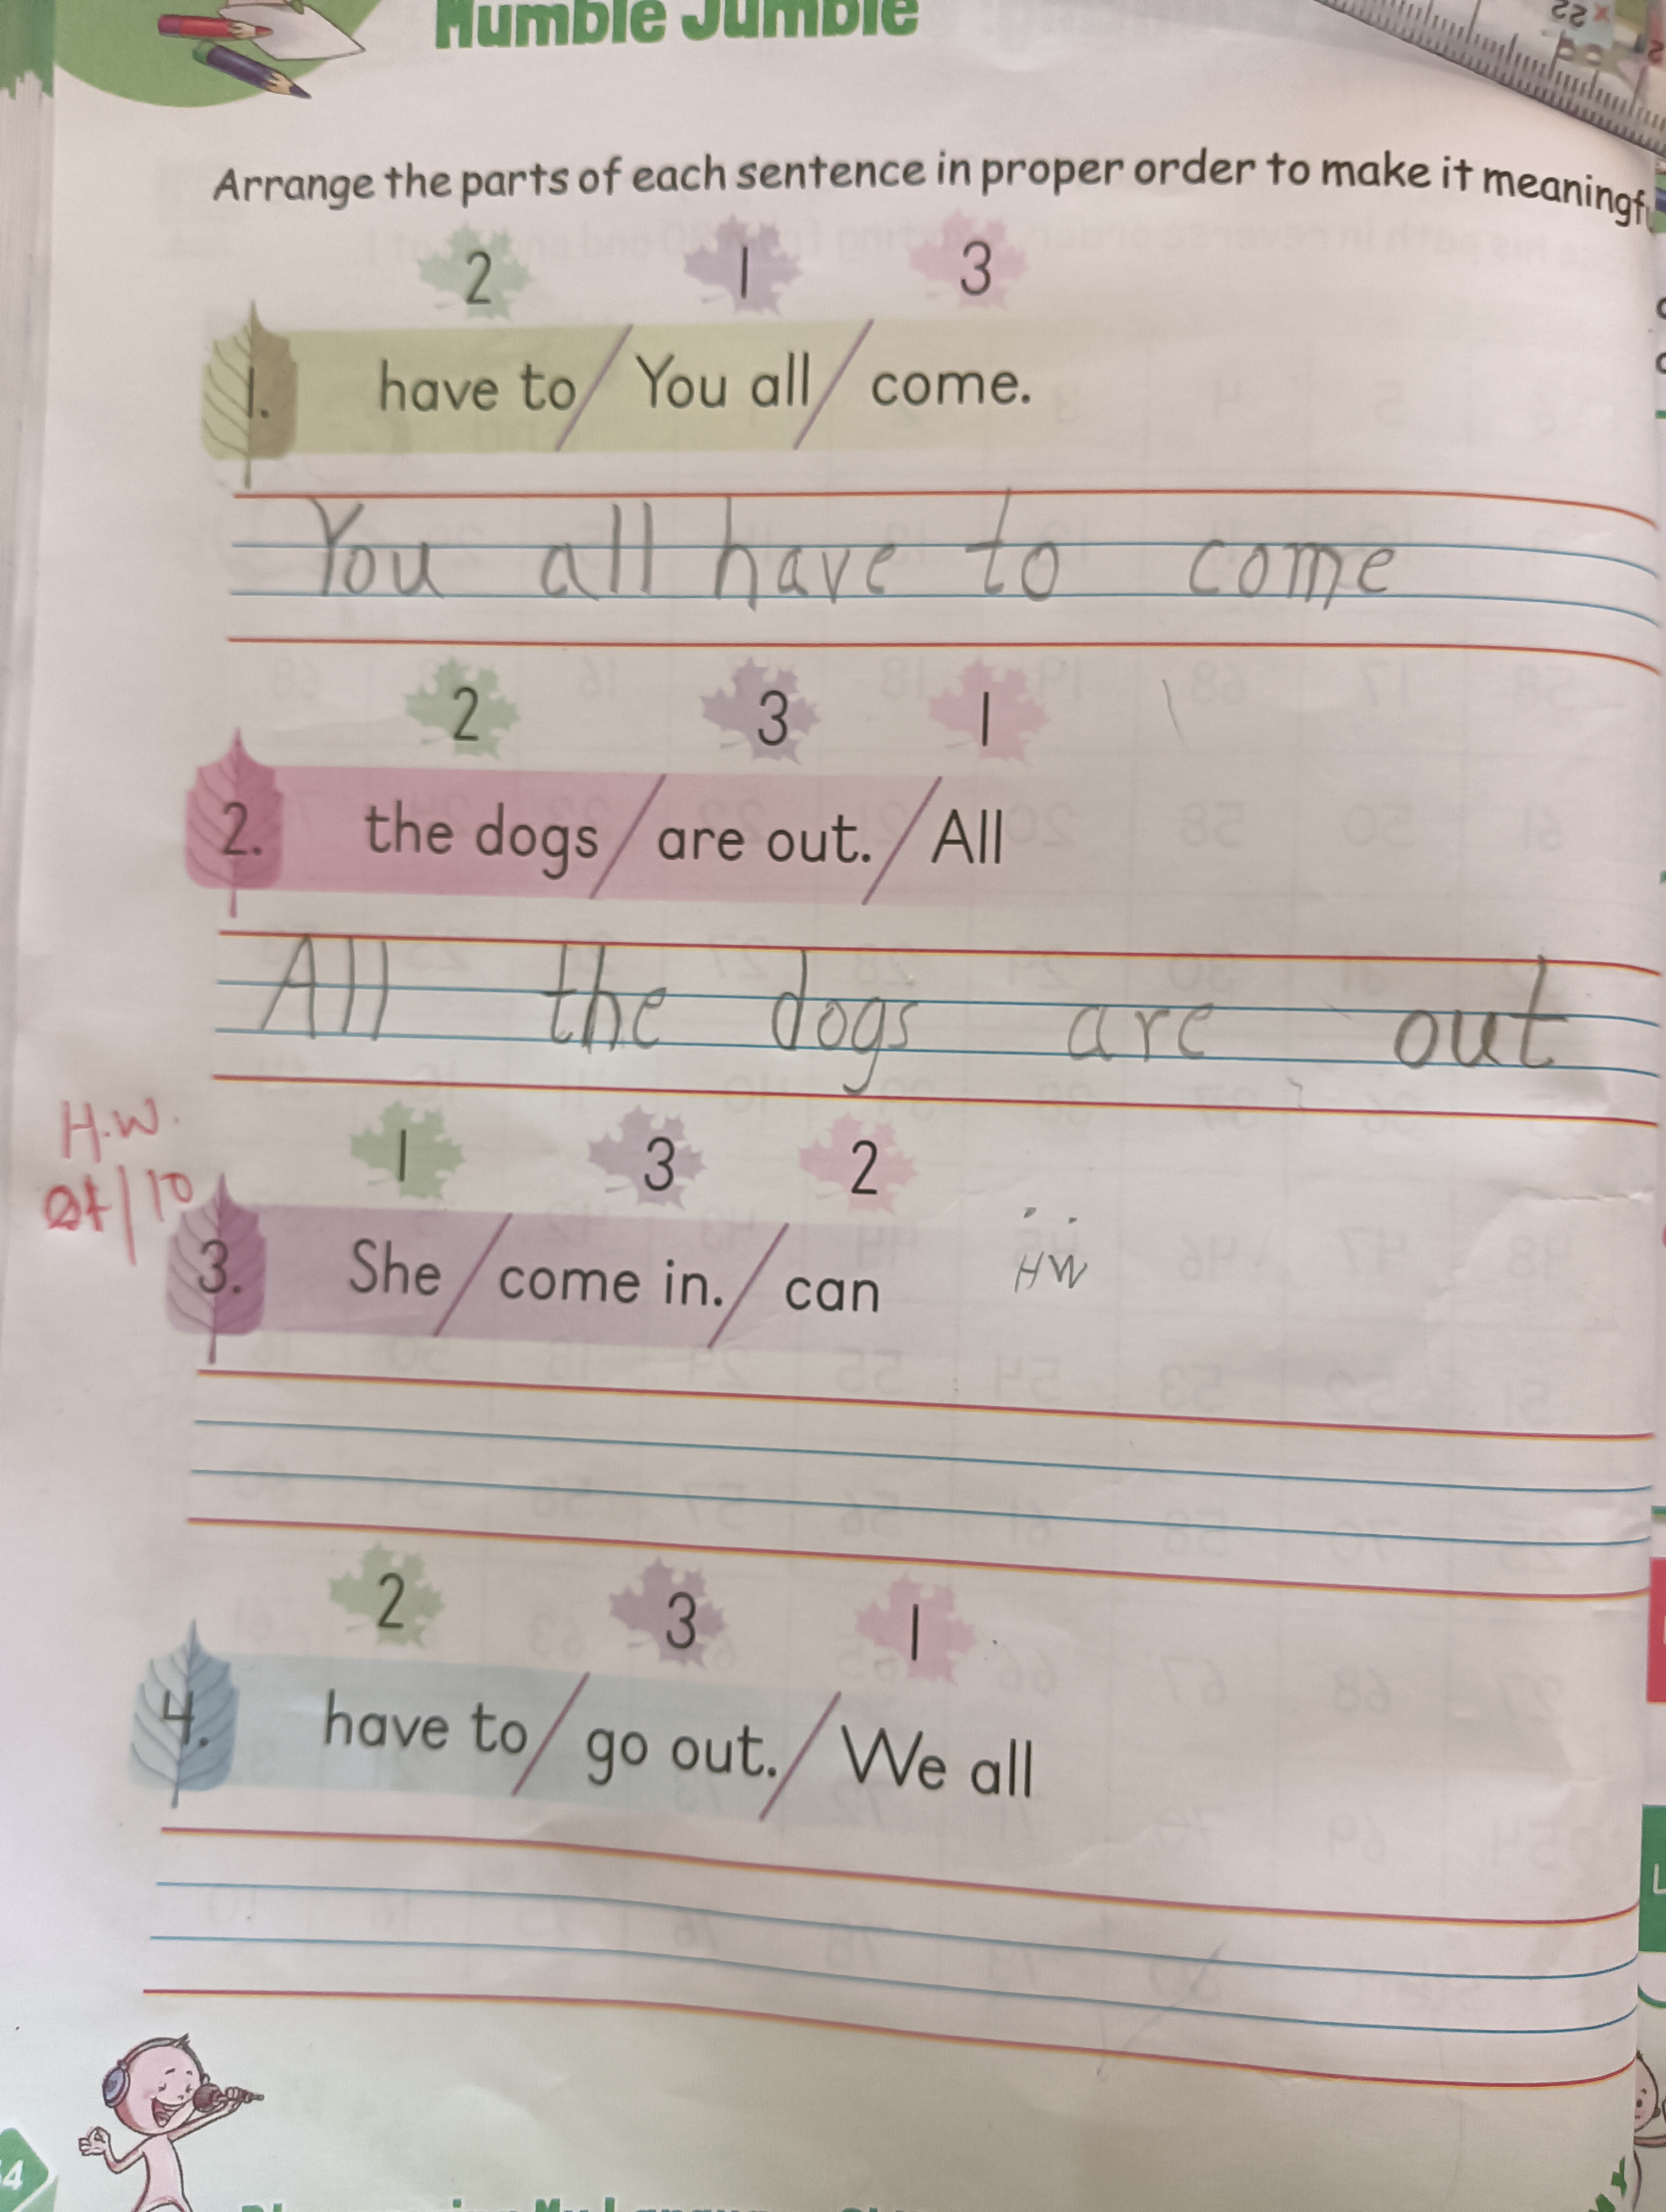 Humble Jumble
Arrange the parts of each sentence in proper order to make it
2 1 3
1. have to / You all / come.
You all have to come
2 3 1
2. the dogs / are out. / All
All the dogs are out
H.W.
1 3 2
3. She / come in. / can
HW
2 3 1
4. have to / go out. / We all